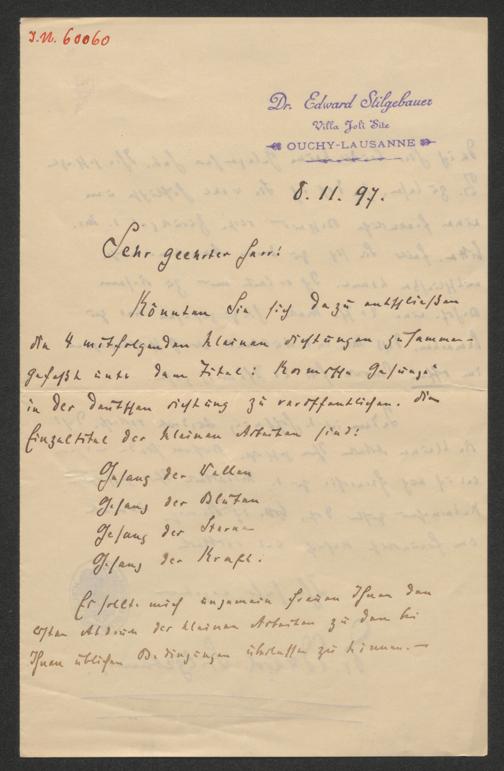 I.N. 60060
Dr. Edward Stilgebauer
Villa Joli Site
OUCHY-LAUSANNE
8. 11. 97.
Sehr geehrter Herr!
Könnten Sie sich dazu entschließen
die 4 mitfolgenden kleinen Dichtungen zusammen-
gefaßt unter dem Titel: Kosmische Gesänge
in der deutschen Dichtung zu veröffentlichen. Die
Einzeltitel der kleinen Arbeiten sind:
Gesang der Wellen
Gesang der Blüten
Gesang der Sterne
Gesang der Kraft.
Es sollte mich ungemein freuen Ihnen den
ersten Abdruck der kleinen Arbeiten zu den bei
Ihnen üblichen Bedingungen überlassen zu können. —